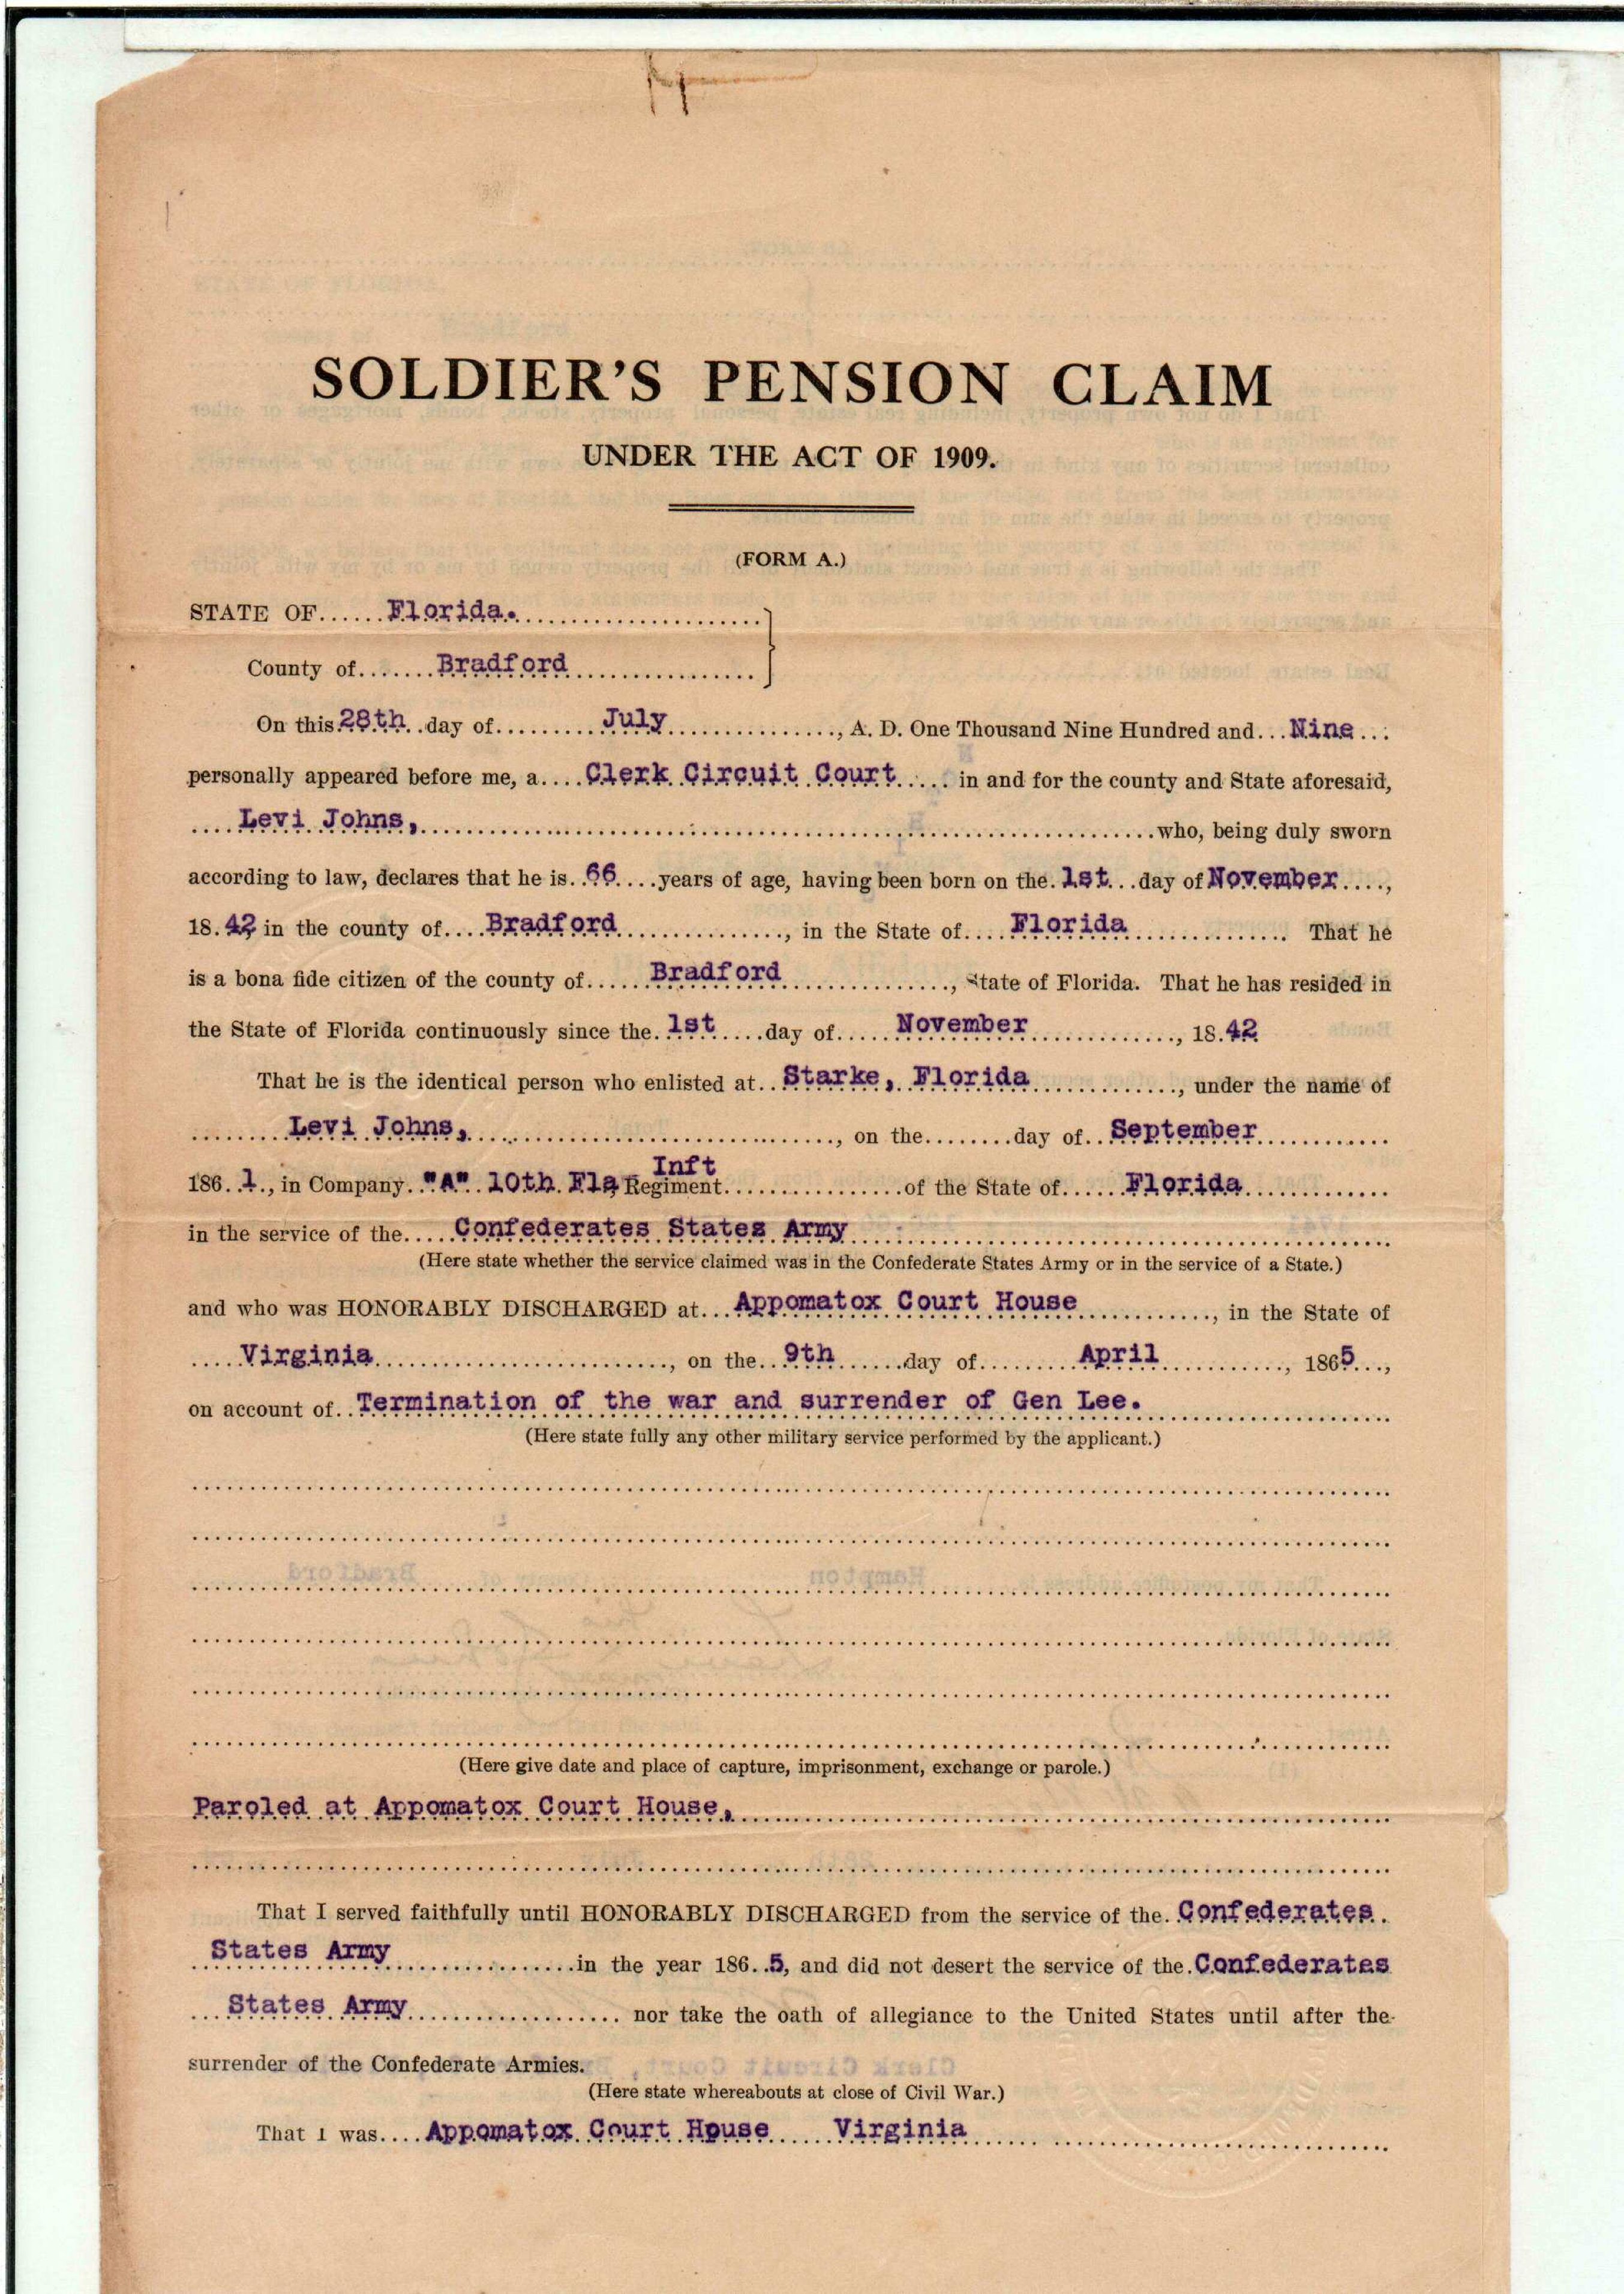 SOLDIER'S PENSION CLAIM
UNDER THE ACT OF 1909.
(FORM A.)
STATE OF......Florida.
County of.......Bradford
On this 28th day of..........July................, A. D. One Thousand Nine Hundred and...Nine...
personally appeared before me, a....Clerk Circuit Court..... in and for the county and State aforesaid,
....Levi Johns,....................who, being duly sworn
according to law, declares that he is..66....years of age, having been born on the.1st...day of November....,
18.42 in the county of....Bradford................, in the State of....Florida................ That he
is a bona fide citizen of the county of......Bradford................, State of Florida. That he has resided in
the State of Florida continuously since the.1st.....day of.....November.............., 18.42
That he is the identical person who enlisted at..Starke, Florida.............., under the name of
.........Levi Johns,...................., on the........day of..September............
Inft
186..1., in Company.."A"..10th. Fla Regiment.................of the State of......Florida.............
in the service of the.....Confederates States Army....................
(Here state whether the service claimed was in the Confederate States Army or in the service of a State.)
and who was HONORABLY DISCHARGED at...Appomatox Court House............., in the State of
.....Virginia.........................., on the..9th.......day of.........April............, 1865...,
on account of..Termination of the war and surrender of Gen Lee.
(Here state fully any other military service performed by the applicant.)
(Here give date and place of capture, imprisonment, exchange or parole.)
Paroled at Appomatox Court House,....................
That I served faithfully until HONORABLY DISCHARGED from the service of the..Confederates.
States Army..................in the year 186..5, and did not desert the service of the.Confederates
...States Army.................... nor take the oath of allegiance to the United States until after the
surrender of the Confederate Armies.
(Here state whereabouts at close of Civil War.)
That I was....Appomatox Court House.....Virginia....................